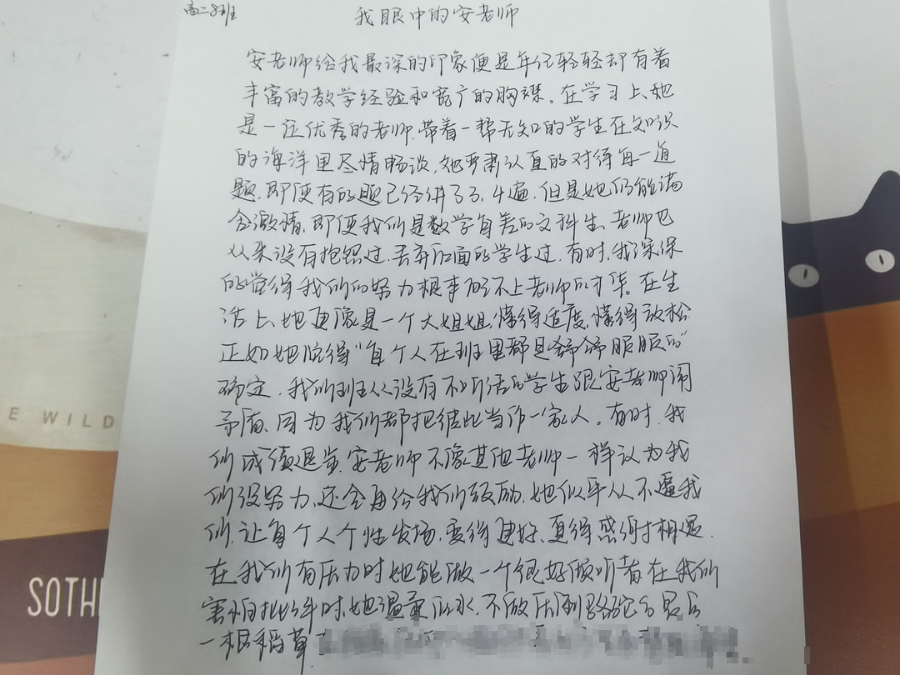 高二8班
我眼中的安老师
安老师给我最深的印象便是年纪轻轻却有着
丰富的教学经验和宽广的胸襟。在学习上,她
是一位优秀的老师,带着一帮无知的学生在知识
的海洋里尽情畅谈,她严肃认真的对待每一道
题,即便有的题已经讲了3、4遍,但是她仍能满
含激情,即便我们是数学自差的文科生,老师也
从来没有抱怨过,丢弃后面的学生过,有时,我深深
的觉得我们的努力根本配不上老师的才华。在生
活上,她更像是一个大姐姐,懂得适度,懂得放松
正如她说得"每个人在班里都是舒舒服服的"
确定,我们班从没有不听话的学生跟安老师闹
矛盾,因为我们都把彼此当作一家人。有时,我
们成绩退步,安老师不像其他老师一样认为我
们没努力,还会再给我们鼓励,她似乎从不逼我
们,让每个人个性发扬,变得更好,真得感谢相遇.
在我们有压力时她能做一个很好倾听者在我们
害怕批评时,她温柔似水,不做压倒骆驼的最后
一根稻草.
E WILD
SOTHE